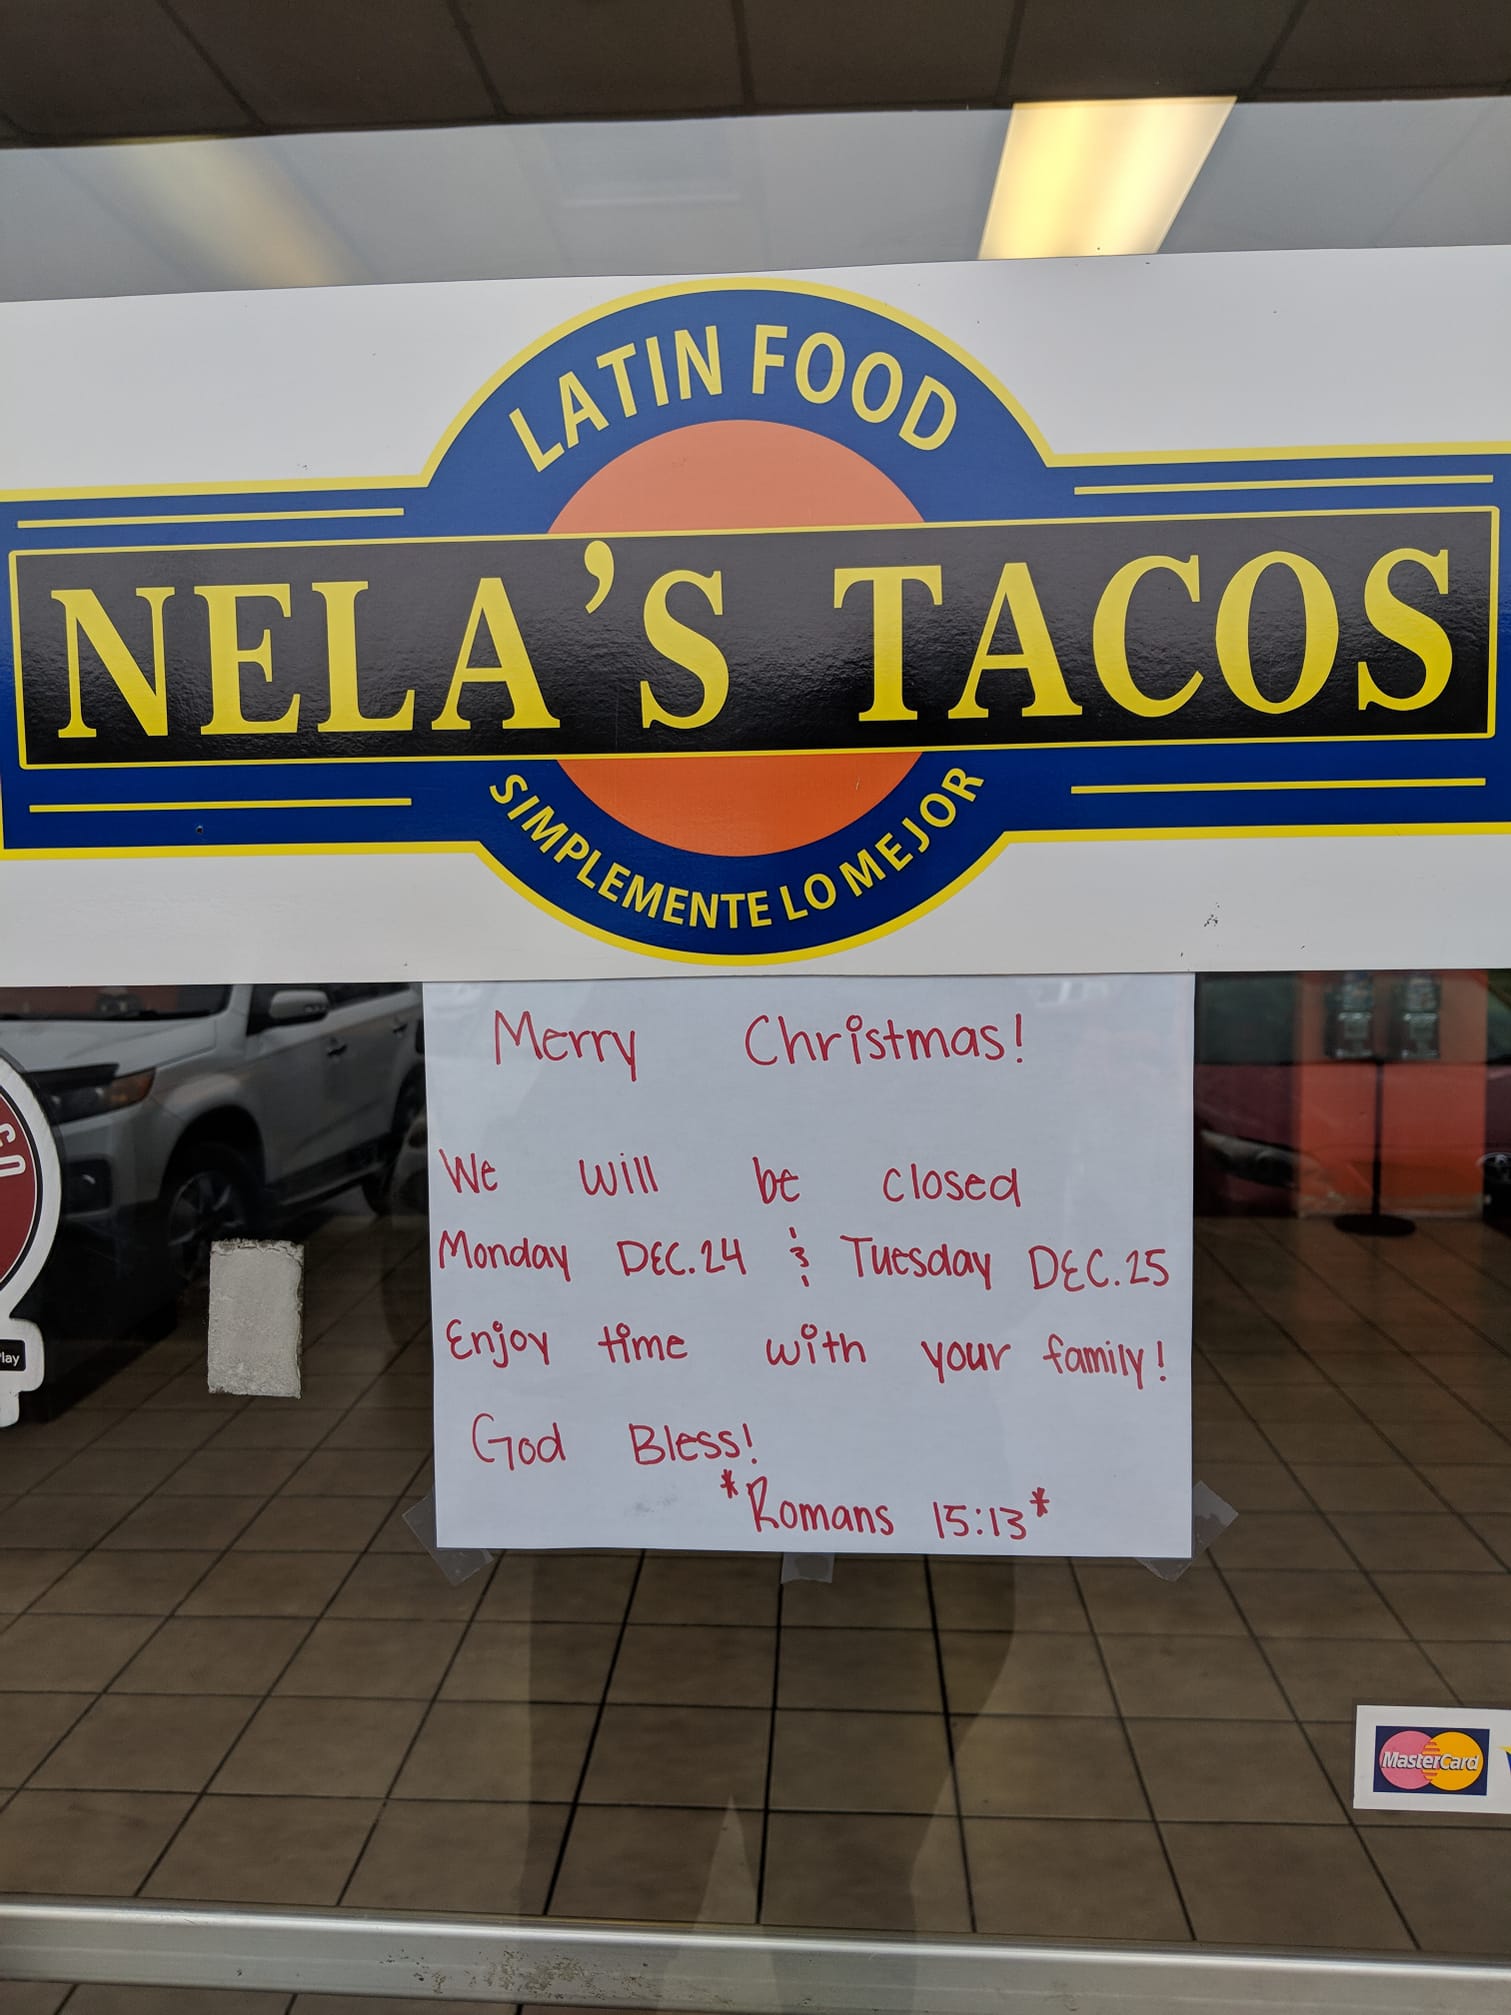 LATIN FOOD
NELA'S TACOS
SIMPLEMENTE LO MEJOR
Merry Christmas!
We will be closed
Monday DEC. 24 & Tuesday DEC. 25
Enjoy time with your family!
God Bless!
*Romans 15:13*
MasterCard